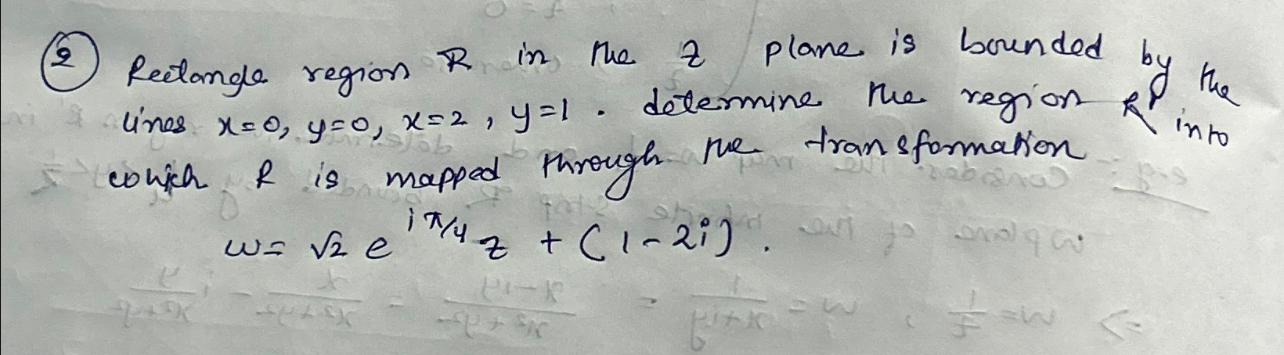 ② Rectangle region R in the z plane is bounded by the
lines x=0, y=0, x=2, y=1. determine the region R' into
which R is mapped through the transformation
w= √2 e^{iπ/4} z + (1-2i).